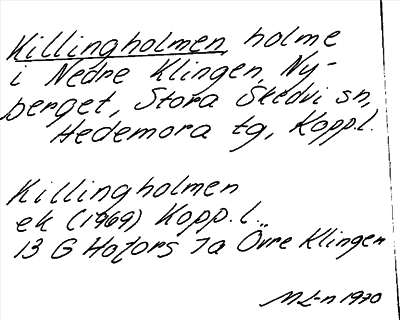 Killingholmen, holme
i Nedre Klingen, Ny-
berget, Stora Skedvi sn,
Hedemora tg, Kopp.l.
Killingholmen
ek (1969) Kopp.l.
13 G Hofors 7a Övre Klingen
M L-n 1970